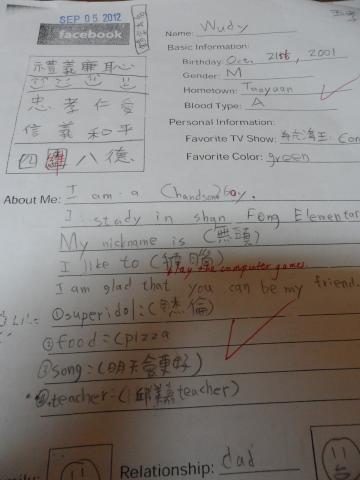 SEP 05 2012
facebook
禮義廉恥
忠孝仁愛
信義和平
四維八德
Name: Wudy
Basic Information:
Birthday: 21st, 2001
Gender: M
Hometown: Taoyuan
Blood Type: A
Personal Information:
Favorite TV Show: 航海王
Favorite Color: green
About Me: I am a (handsome) boy.
I study in shan Feng Elementar
My nickname is (無頭)
I like to (
play the computer games
I am glad that you can be my friend.
①superidol:(杰倫)
②food:(pizza
③song:(明天會更好)
④teacher:( teacher)
Relationship: dad